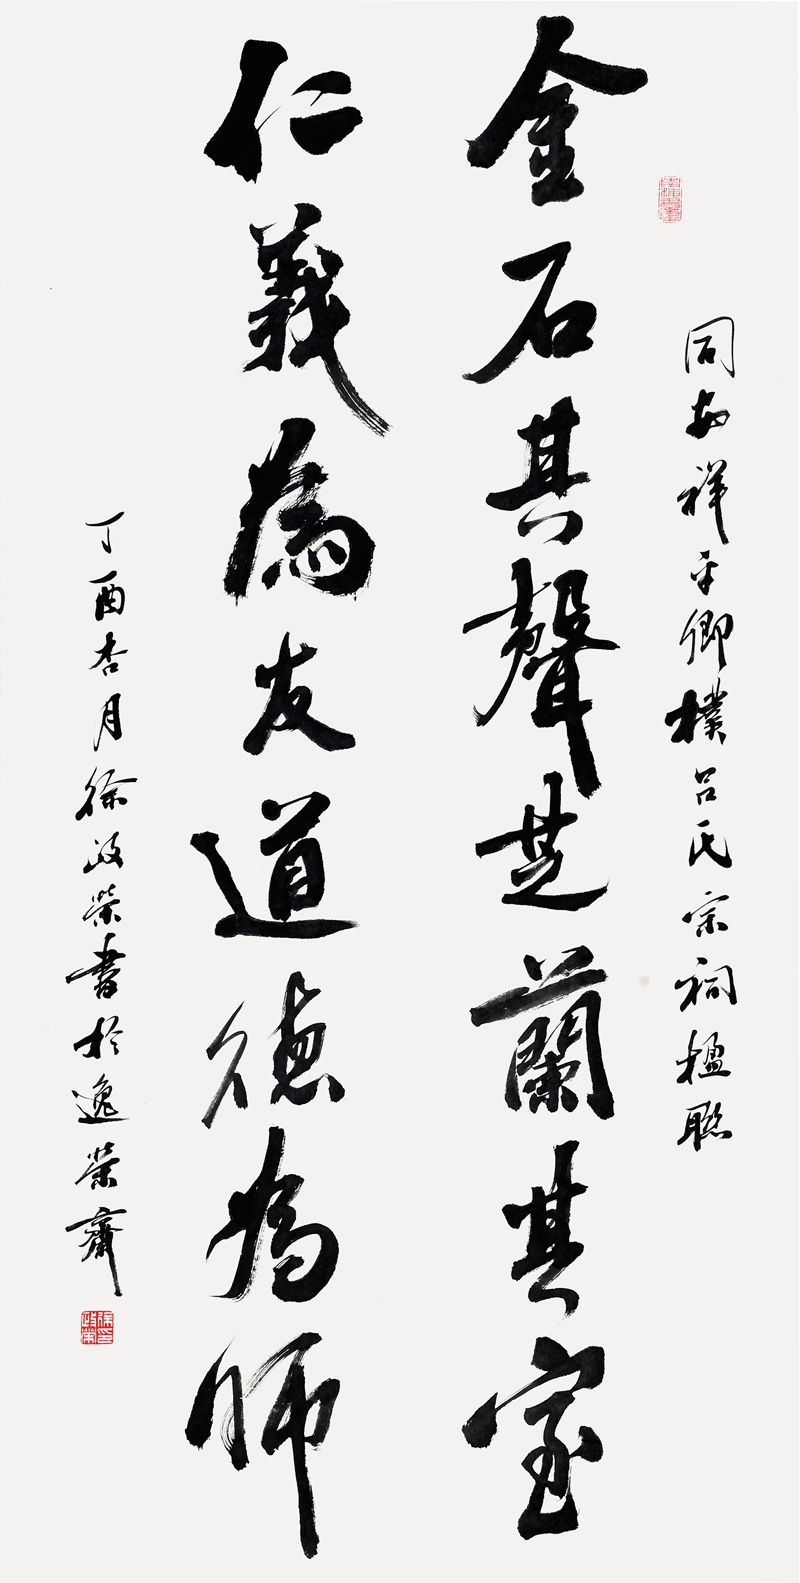 同安祥平卿樸呂氏宗祠楹聯
金石其聲芝蘭其室
仁義為友道德為師
丁酉杏月徐政榮書於逸榮齋